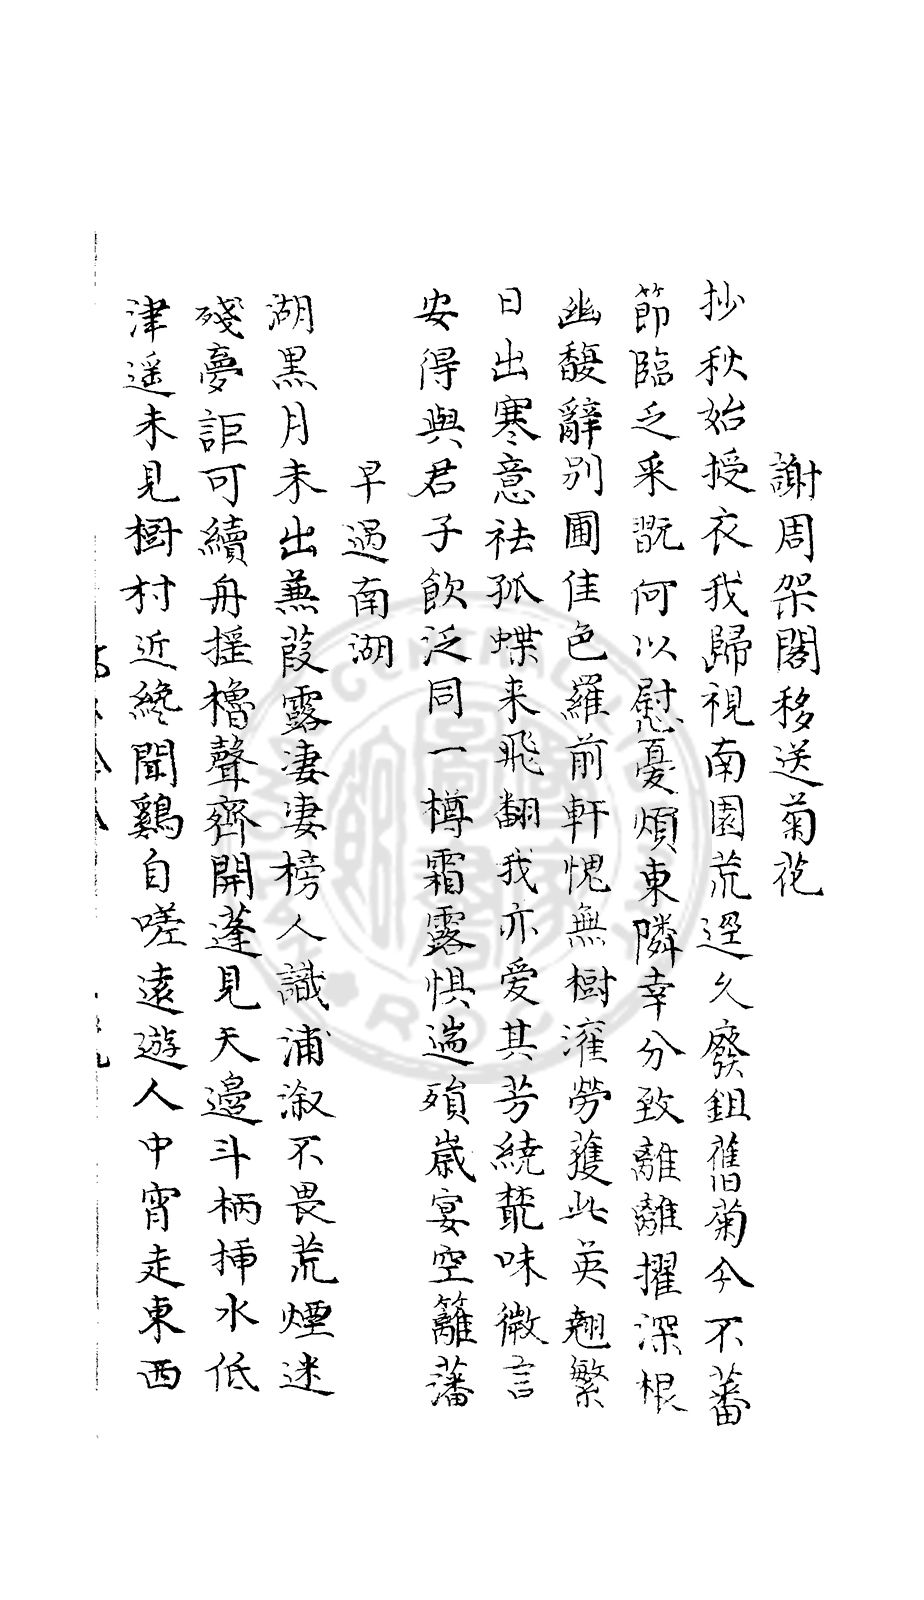 謝周架閣移送菊花
抄秋始授衣我歸視南園荒逕久廢鉏舊菊今不蕃
節臨乏采翫何以慰憂煩東隣幸分致離離擢深根
幽馥辭別圃佳色羅前軒愧無樹漼勞蒦此英翹繁
日出寒意祛孤蝶来飛翻我亦愛其芳繞藂味微言
安得與君子飲泛同一樽霜露惧遄殞歲宴空籬藩
早過南湖
湖黒月未出蒹葭露凄凄榜人識浦溆不畏荒煙迷
殘夢詎可續舟揺櫓聲齊開蓬見天邊斗柄挿水低
津遥未見樹村近終聞鷄自嗟遠遊人中宵走東西